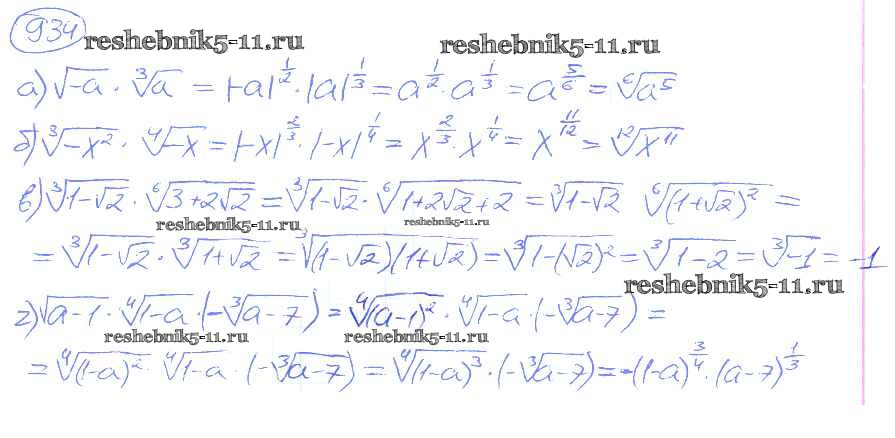 934 reshebnik5-11.ru reshebnik5-11.ru
а) √-a · ∛a = |-a|^{1/2} · |a|^{1/3} = a^{1/2} · a^{1/3} = a^{5/6} = ⁶√a⁵
б) ∛-x² · ⁴√-x = |-x|^{2/3} · |-x|^{1/4} = x^{2/3} · x^{1/4} = x^{11/12} = ¹²√x¹¹
в) ∛(1-√2) · ⁶√(3+2√2) = ∛(1-√2) · ⁶√(1+2√2+2) = ∛(1-√2) ⁶√((1+√2)²) =
reshebnik5-11.ru reshebnik5-11.ru
= ∛(1-√2) · ∛(1+√2) = ∛((1-√2)(1+√2)) = ∛(1-(√2)²) = ∛(1-2) = ∛-1 = -1
reshebnik5-11.ru
г) √(a-1) · ⁴√(1-a) · (-∛(a-7)) = ⁴√((a-1)²) · ⁴√(1-a) · (-∛(a-7)) =
reshebnik5-11.ru reshebnik5-11.ru
= ⁴√((1-a)²) · ⁴√(1-a) · (-∛(a-7)) = ⁴√((1-a)³) · (-∛(a-7)) = -(1-a)^{3/4} · (a-7)^{1/3}